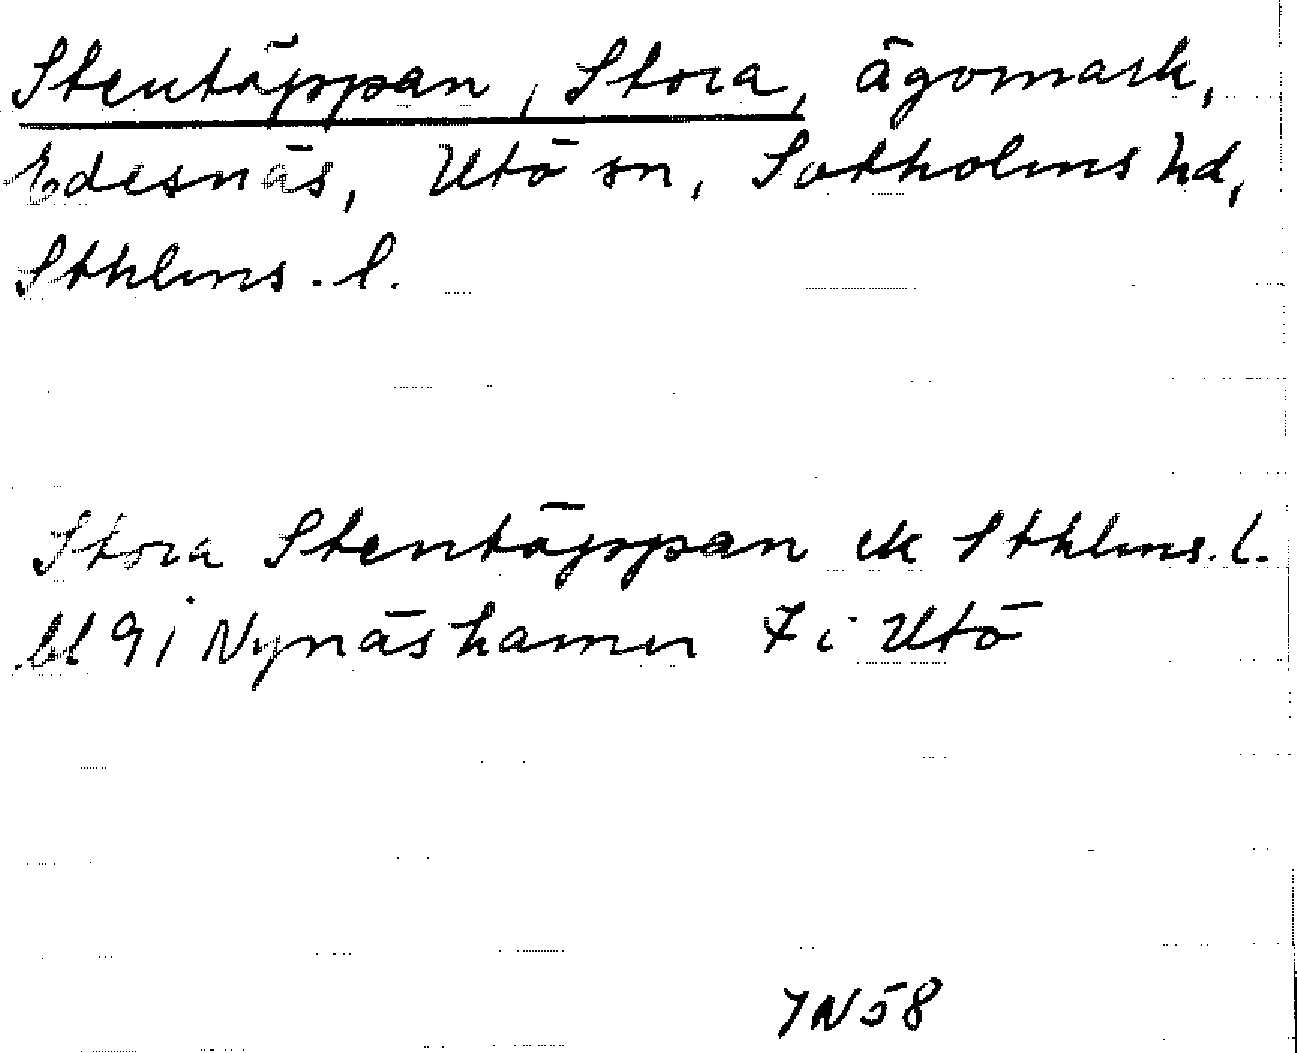 Stentäppan, Stora, ägomark,
Edesnäs, Utö sn, Sotholms hd,
Sthlms. l.
Stora Stentäppan ek Sthlms. l.
bl 91 Nynäshamn 7 i Utö
IN58